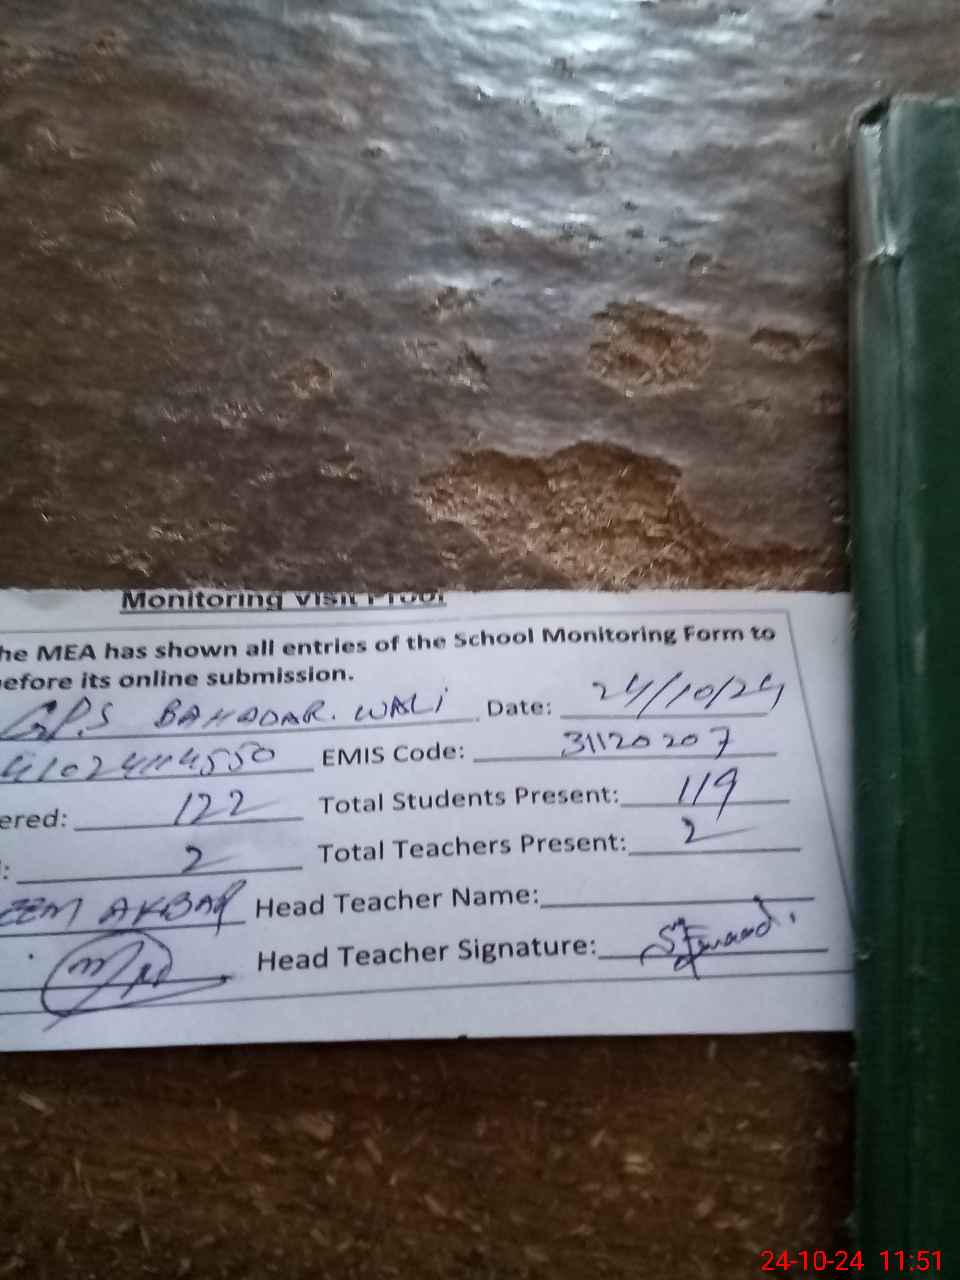 Monitoring Visit Proof
he MEA has shown all entries of the School Monitoring Form to
efore its online submission.
GPS BAHADAR. WALI Date: 24/10/24
EMIS Code: 31120207
ered: 122 Total Students Present: 119
: 2 Total Teachers Present: 2
EEM AKBAR Head Teacher Name:
Head Teacher Signature:
24-10-24 11:51